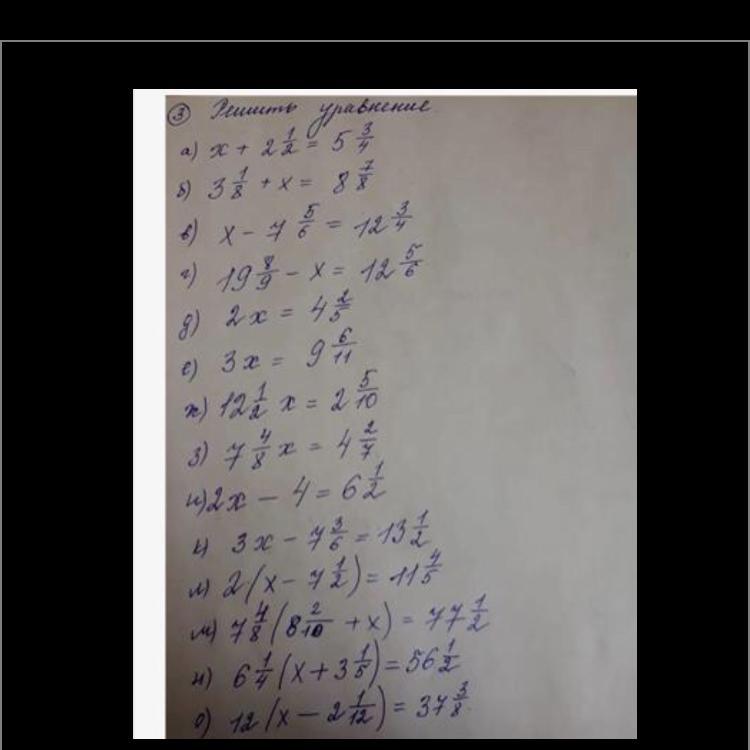 ③ Решить уравнение
а) x + 2 1/2 = 5 3/4
б) 3 1/8 + x = 8 7/8
в) x - 7 5/6 = 12 3/4
г) 19 8/9 - x = 12 5/6
д) 2x = 4 2/5
е) 3x = 9 6/11
ж) 12 1/2 x = 2 5/10
з) 7 4/8 x = 4 2/7
и) 2x - 4 = 6 1/2
к) 3x - 7 3/6 = 13 1/2
л) 2(x - 7 1/2) = 11 4/5
м) 7 4/8 (8 2/10 + x) = 77 1/2
н) 6 1/4 (x + 3 1/5) = 56 1/2
о) 12 (x - 2 1/12) = 37 3/8